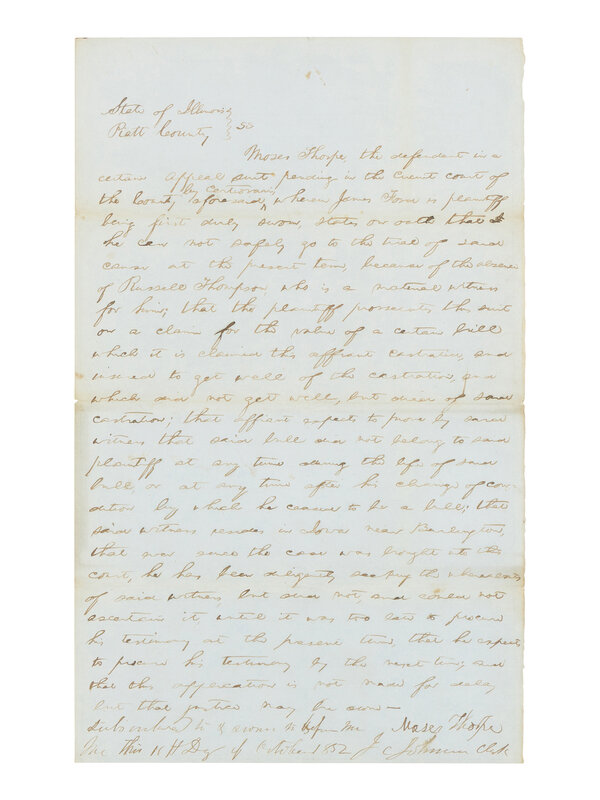 State of Illinois }
Piatt County } SS
Moses Thorpe, the defendant in a
certain appeal suit pending in the Circuit court of
by Certiorari
the County aforesaid, wherein James Torn is plaintiff
being first duly sworn, states on oath that
he can not safely go to the trial of said
cause at the present term, because of the absence
of Russell Thompson who is a material witness
for him; that the plaintiff prosecutes this suit
on a claim for the value of a certain bull
which it is claimed this affiant castrated, and
insured to get well of the castration, and
which did not get well, but died of said
castration; that affiant expects to prove by said
witness that said bull did not belong to said
plaintiff at any time during the life of said
bull, or at any time after his change of con
dition by which he ceased to be a bull; that
said witness resides in Iowa near Burlington,
that ever since the case was brought to this
court, he has been diligently seeking the whereabouts
of said witness, but did not, and could not
ascertain it, until it was too late to procure
his testimony at the present term, that he expects
to procure his testimony by the next term; and
that this application is not made for delay
but that justice may be done—
Subscribed to & sworn to before me Moses Thorpe
me this Day of October 1852 J C Johnson Clk